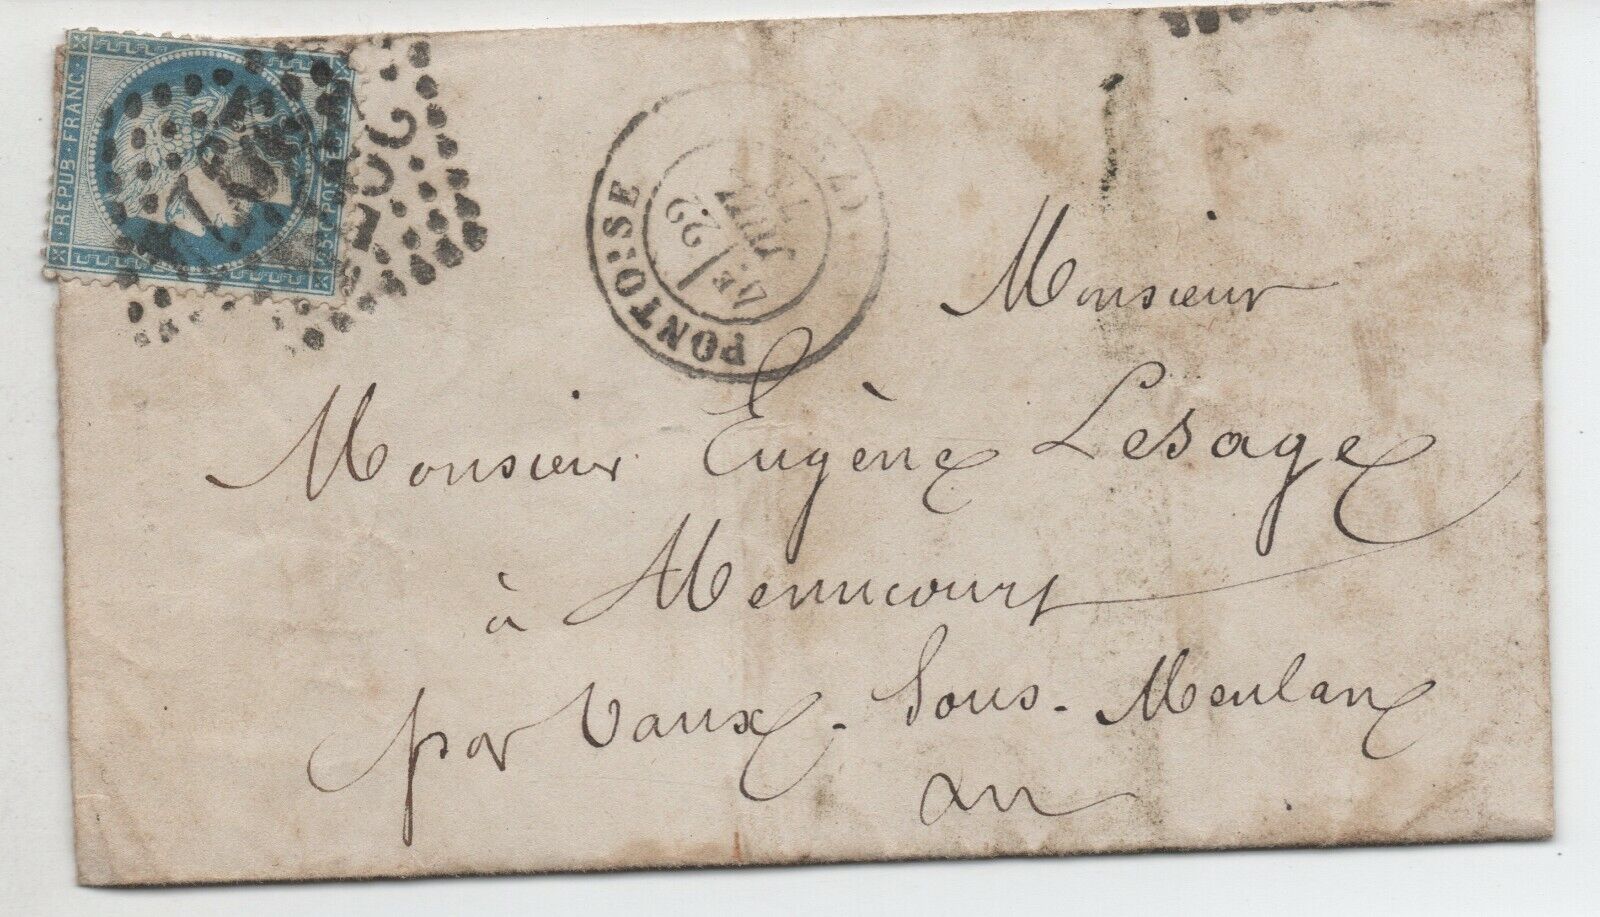 REPUB·FRANC·
25 C. POSTES 25 C.
PONTOISE
4E
22
JUIL
73
Monsieur
Monsieur Eugène Lesage
à Menucourt
par Vaux-Sous-Meulan